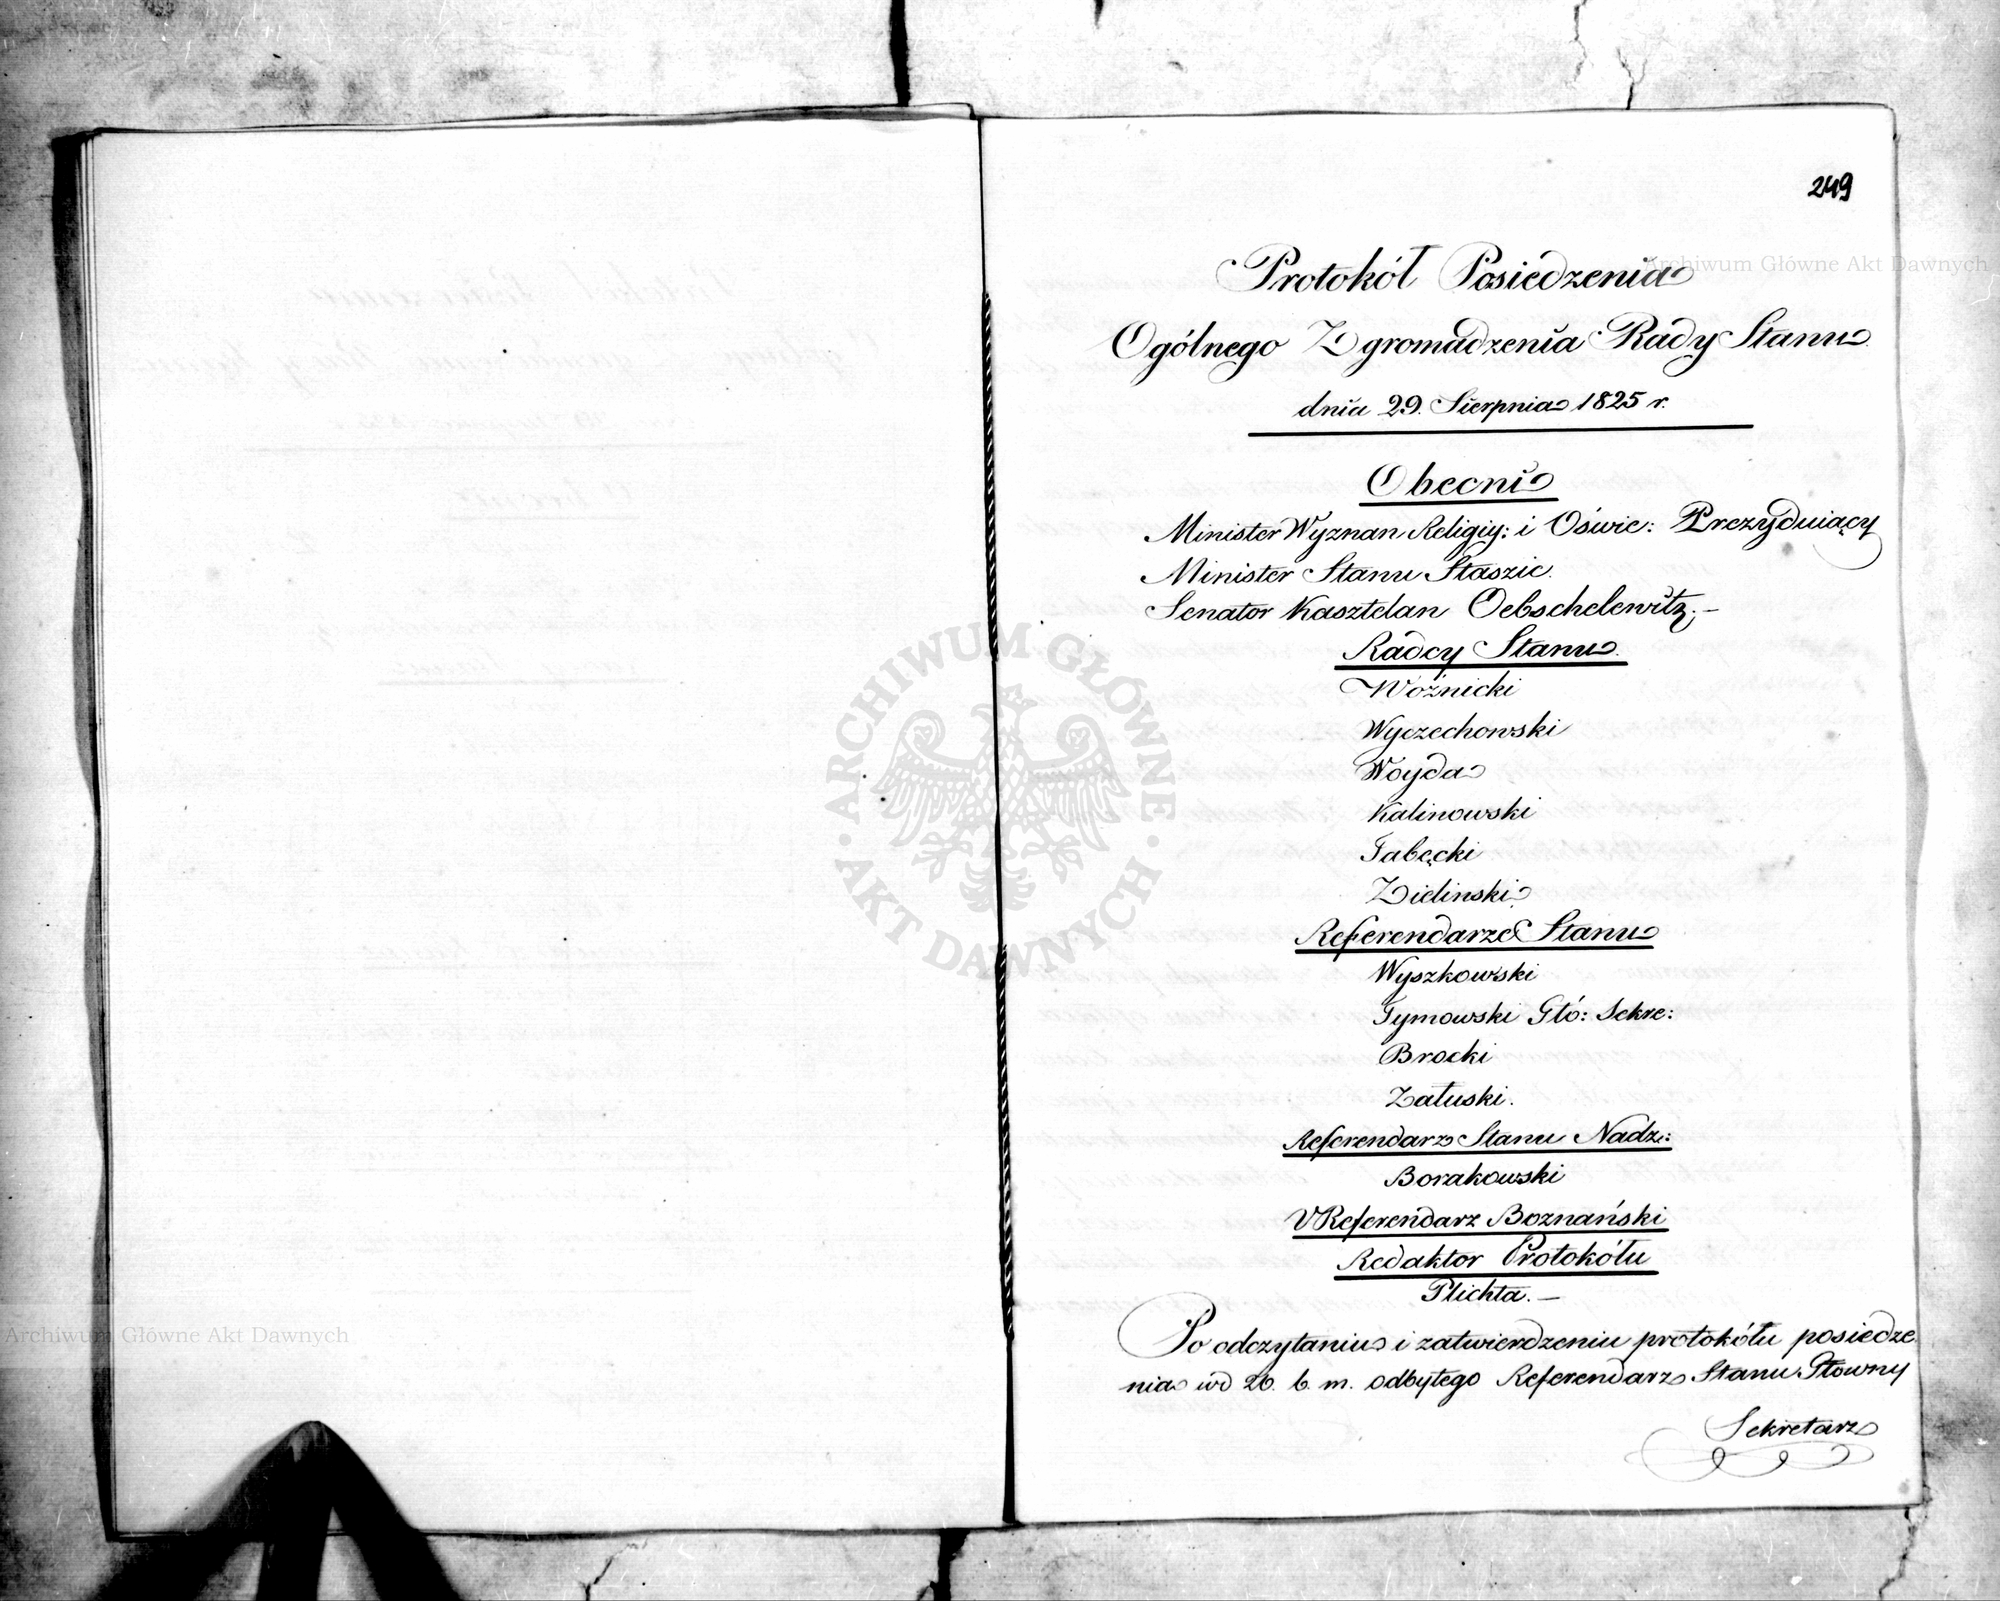 249
Archiwum Główne Akt Dawnych
Protokół Posiedzenia
Ogólnego Zgromadzenia Rady Stanu
dnia 29. Sierpnia 1825 r.
Obecni
Minister Wyznan Religiy: i Oświe: Prezyduiący
Minister Stanu Staszic.
Senator Kasztelan Oebschelewitz; –
Radcy Stanu.
Woźnicki
Wyczechowski
Woyda
Kalinowski
Tabęcki
Zielinski
Referendarze Stanu
Wyszkowski
Tymowski Głó: Sekre:
Brocki
Załuski.
Referendarz Stanu Nadz:
Borakowski
VReferendarz Boznański
Redaktor Protokółu
Plichta. –
Po odczytaniu i zatwierdzeniu protokółu posiedze
nia wd 26. b. m. odbytego Referendarz Stanu Głowny
Sekretarz
ARCHIWUM GŁÓWNE
AKT DAWNYCH
Archiwum Główne Akt Dawnych